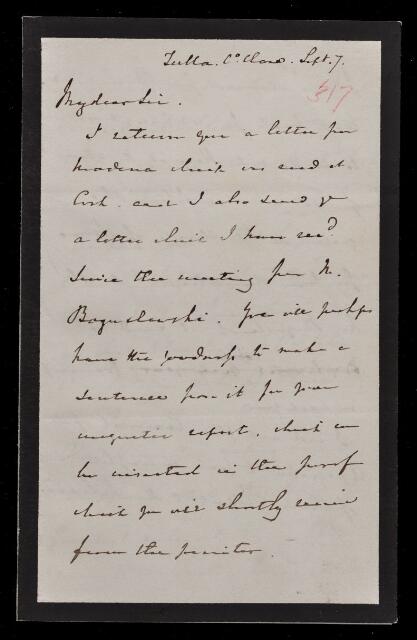 Tulla. Co. Clare. Sept. 7.
317
My dear Sir.
I return you a letter from
Modena which was read at
Cork. and I also send you
a letter which I have recd.
since the meeting from M.
Boguslawski. You will perhaps
have the goodness to make a
sentence from it for your
magnetic report, which can
be inserted in the proof
which you will shortly receive
from the printer.